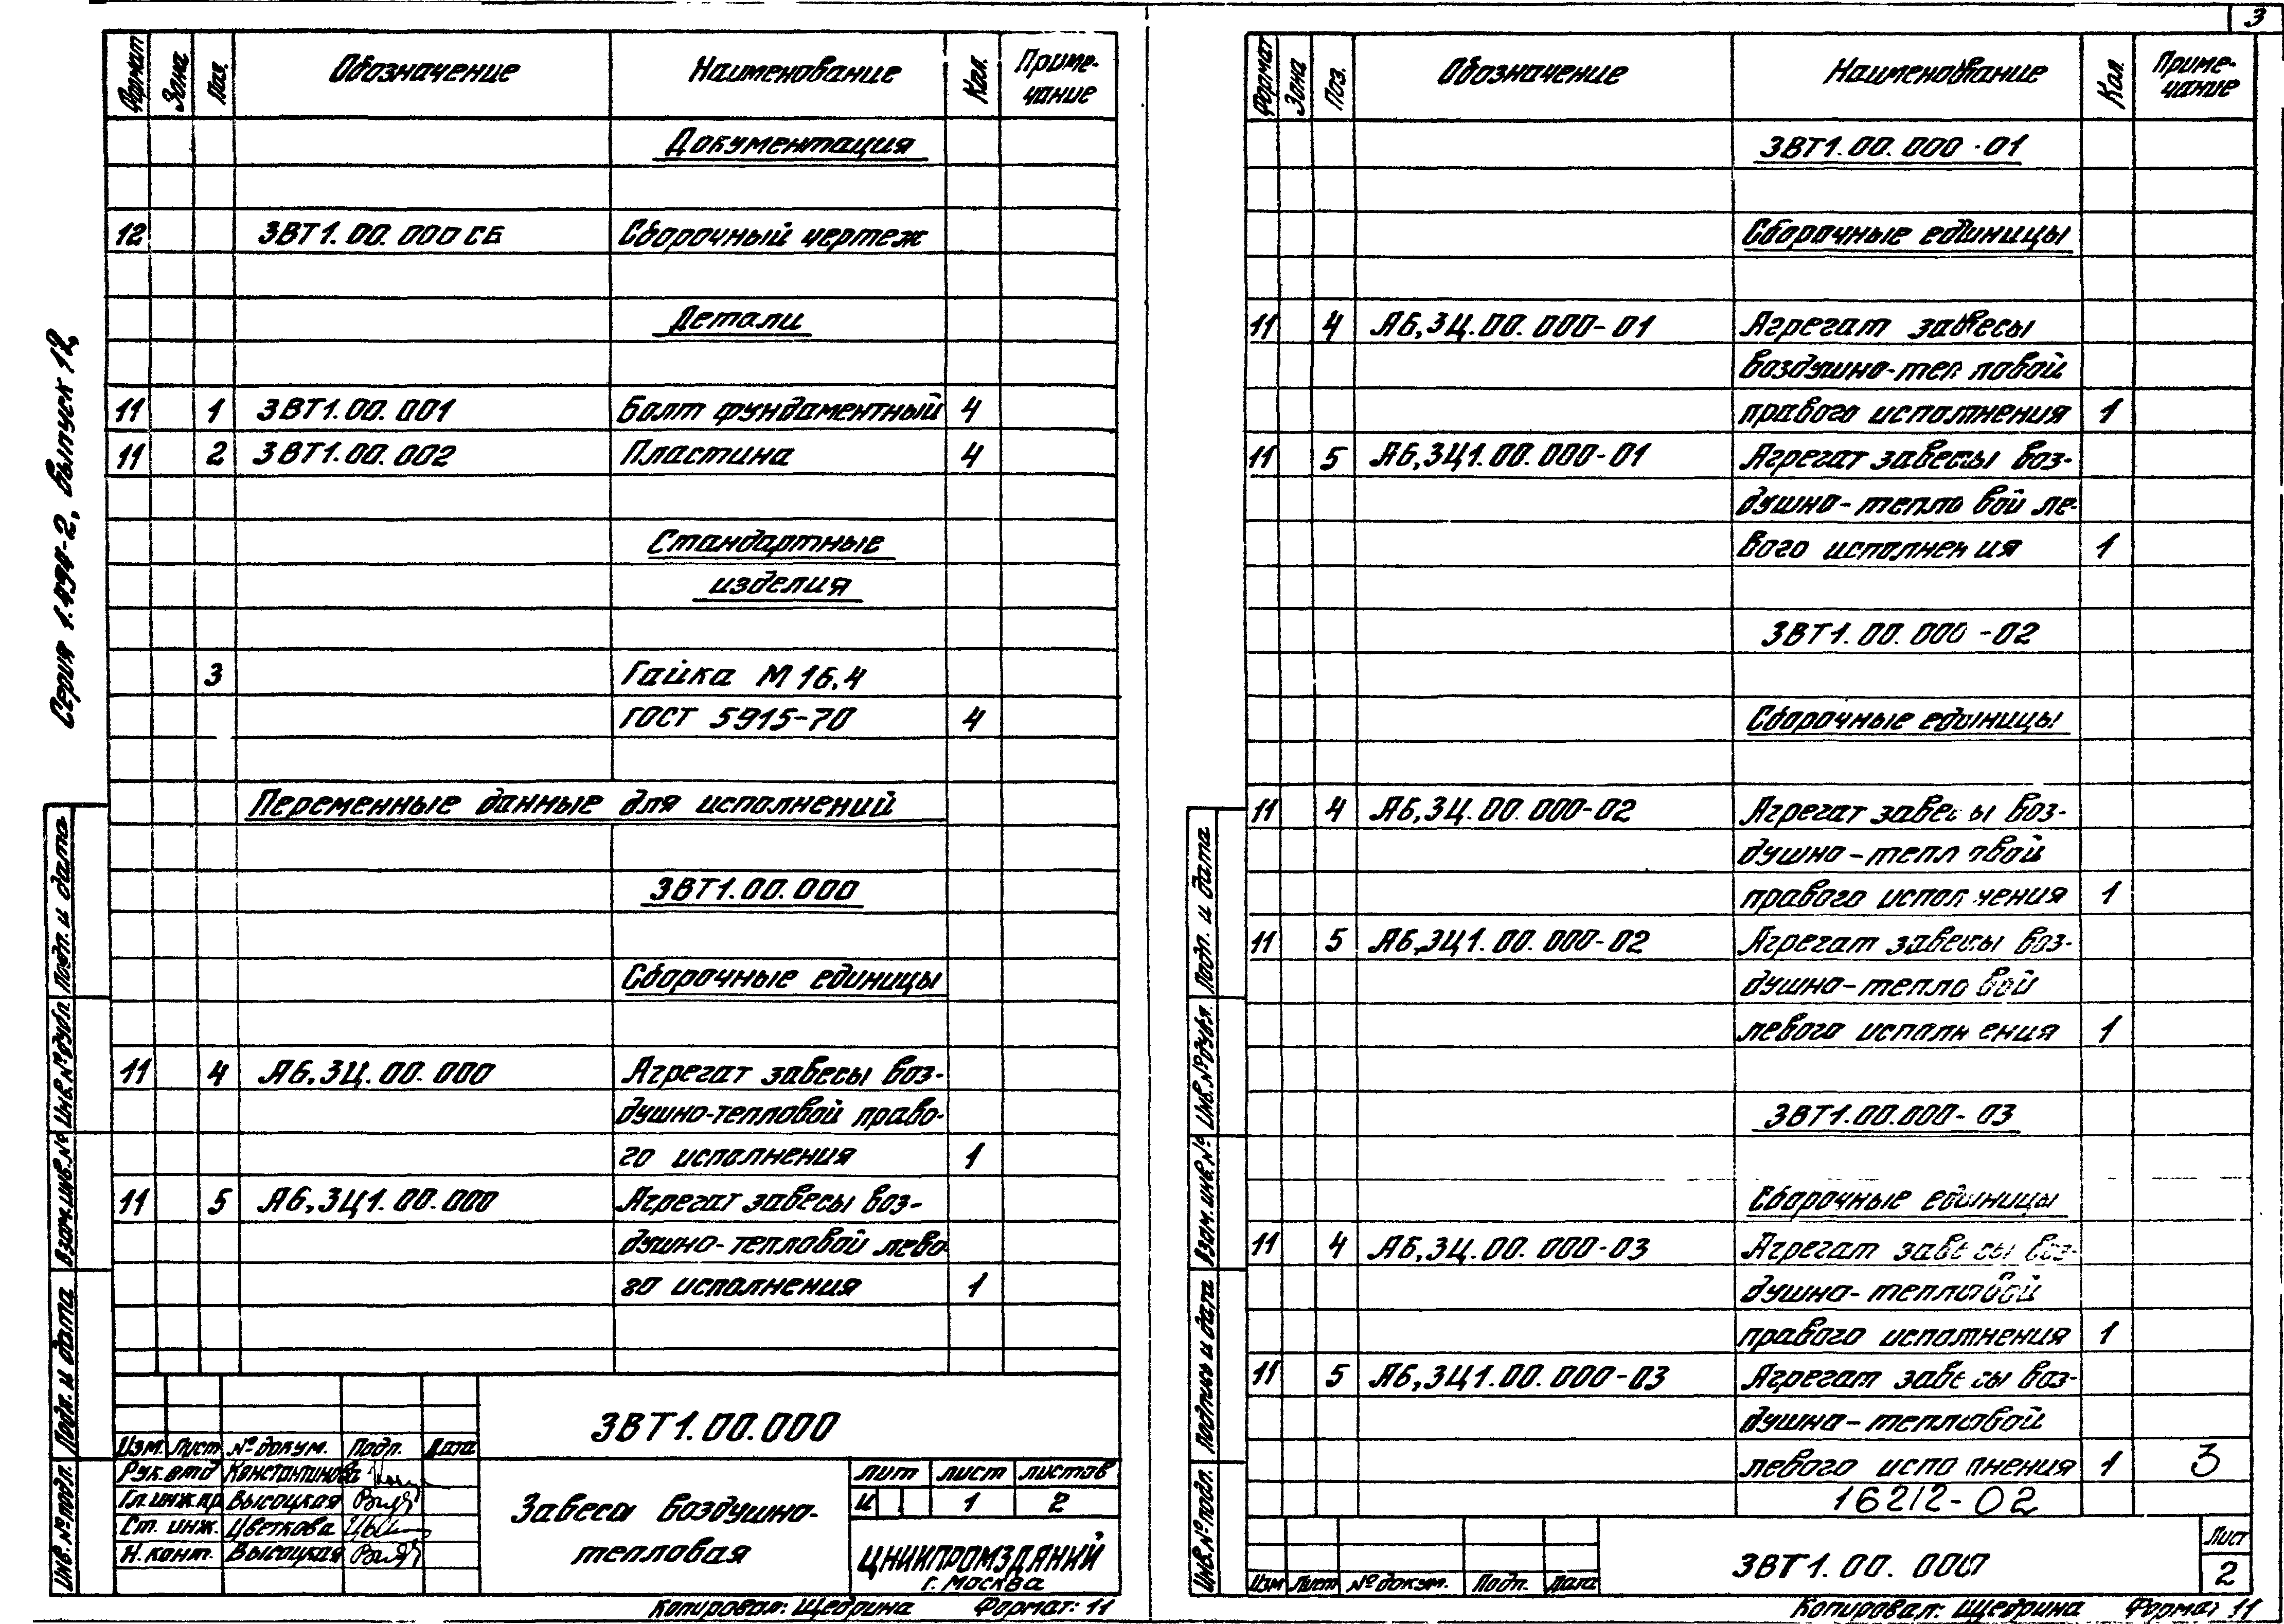 3
Серия 1.494-2, Выпуск 12,
Формат Зона Поз. Обозначение Наименование Кол. Приме-
чание
Документация
12 ЗВТ1.00.000СБ Сборочный чертеж
Детали
11 1 ЗВТ1.00.001 Болт фундаментный 4
11 2 ЗВТ1.00.002 Пластина 4
Стандартные
изделия
3 Гайка М 16.4
ГОСТ 5915-70 4
Переменные данные для исполнений
ЗВТ1.00.000
Сборочные единицы
11 4 А6,3Ц.00.000 Агрегат завесы воз-
душно-тепловой право-
го исполнения 1
11 5 А6,3Ц1.00.000 Агрегат завесы воз-
душно-тепловой лево-
го исполнения 1
Подп. и дата
Инв.№ дубл.
Взам.инв.№
Подп. и дата
Инв.№ подл.
Изм. Лист № докум. Подп. Дата
Рук.отд Константинова
Гл.инж.пр. Высоцкая
Ст. инж. Цветкова
Н.конт. Высоцкая
ЗВТ1.00.000
Завеса воздушно-
тепловая
лит лист листов
И 1 2
ЦНИИПРОМЗДАНИЙ
г. Москва
Копировал: Щедрина Формат: 11
Формат Зона Поз. Обозначение Наименование Кол. Приме-
чание
ЗВТ1.00.000-01
Сборочные единицы
11 4 А6,3Ц.00.000-01 Агрегат завесы
воздушно-тепловой
правого исполнения 1
11 5 А6,3Ц1.00.000-01 Агрегат завесы воз-
душно-тепловой ле-
вого исполнения 1
ЗВТ1.00.000-02
Сборочные единицы
11 4 А6,3Ц.00.000-02 Агрегат завесы воз-
душно-тепловой
правого исполнения 1
11 5 А6,3Ц1.00.000-02 Агрегат завесы воз-
душно-тепловой
левого исполнения 1
ЗВТ1.00.000-03
Сборочные единицы
11 4 А6,3Ц.00.000-03 Агрегат завесы воз-
душно-тепловой
правого исполнения 1
11 5 А6,3Ц1.00.000-03 Агрегат завесы воз-
душно-тепловой
левого исполнения 1 3
16212-02
Подп. и дата
Инв.№ дубл.
Взам.инв.№
Подпись и дата
Инв.№ подл.
Изм Лист № докум. Подп. Дата
ЗВТ1.00.000
Лист
2
Копировал: Щедрина Формат 11